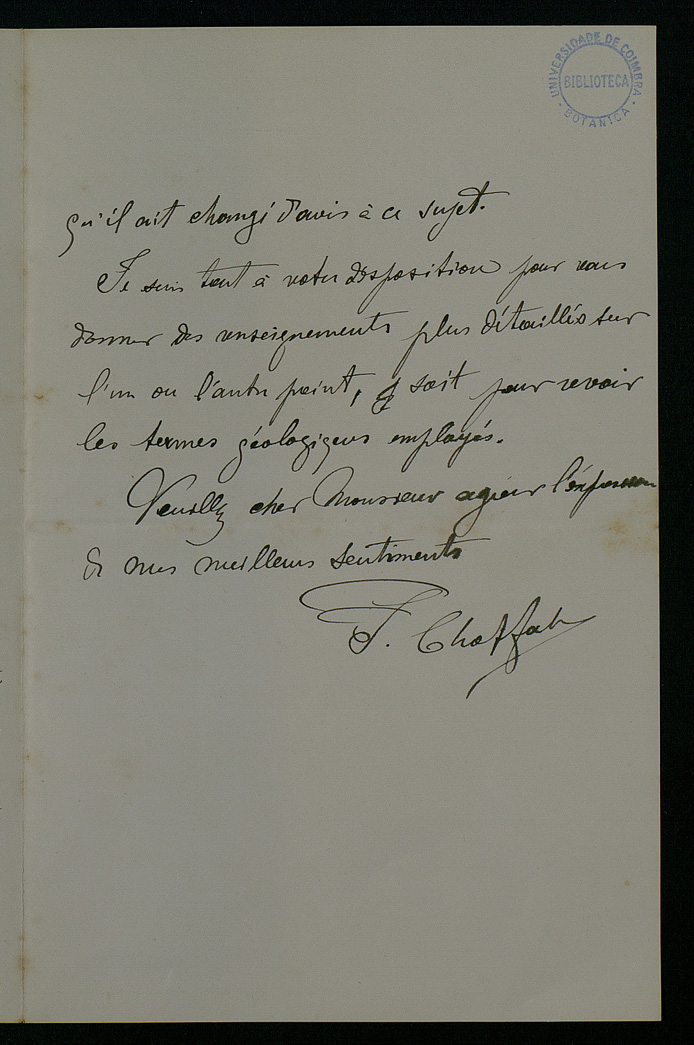 UNIVERSIDADE DE COIMBRA
BIBLIOTECA
BOTANICA
qu'il ait changé d'avis à ce sujet.
Je suis tout à votre disposition pour vous
donner des renseignements plus détaillés sur
l'un ou l'autre point, soit pour revoir
les termes géologiques employés.
Veuillez cher Monsieur agréer l'expression
de mes meilleurs sentiments
P. Choffat